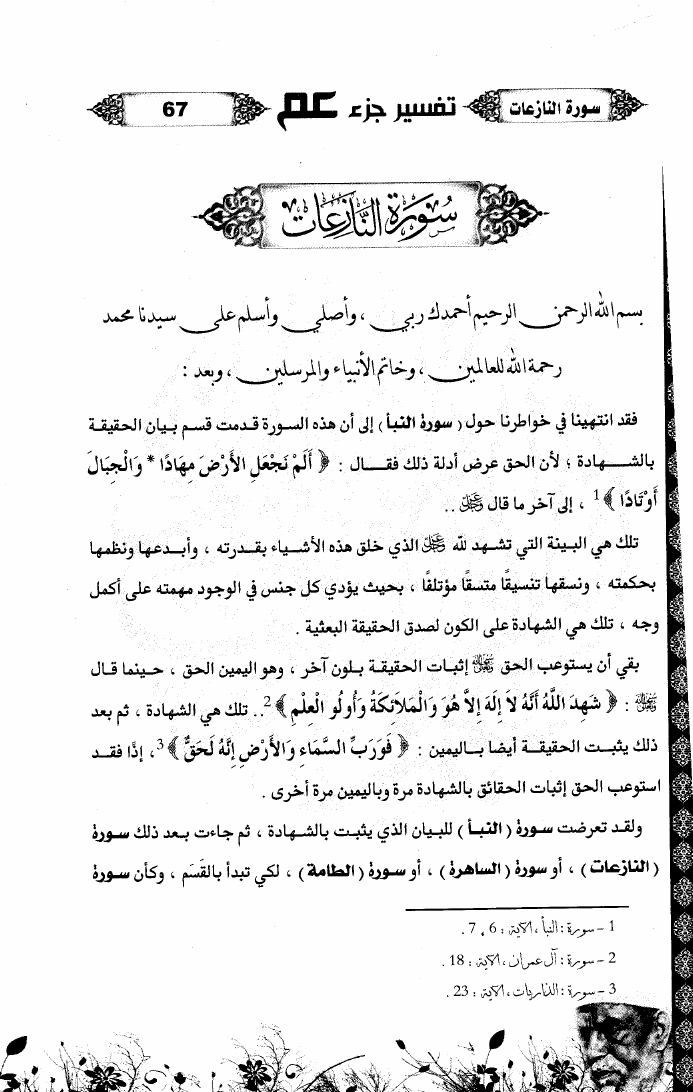 سورة النازعات
تفسير جزء عم
67
سُورَةُ النَّازِعَاتِ
بسم الله الرحمن الرحيم أحمدك ربي ، وأصلي وأسلم على سيدنا محمد
رحمة الله للعالمين ، وخاتم الأنبياء والمرسلين ، وبعد :
فقد انتهينا في خواطرنا حول ( سورة النبأ ) إلى أن هذه السورة قدمت قسم بيان الحقيقة
بالشهادة ؛ لأن الحق عرض أدلة ذلك فقال : ﴿ أَلَمْ نَجْعَلِ الأَرْضَ مِهَادًا * وَالْجِبَالَ
أَوْتَادًا ﴾1 ، إلى آخر ما قال ﷻ ..
تلك هي البينة التي تشهد لله ﷻ الذي خلق هذه الأشياء بقدرته ، وأبدعها ونظمها
بحكمته ، ونسقها تنسيقًا متسقًا مؤتلفًا ، بحيث يؤدي كل جنس في الوجود مهمته على أكمل
وجه ، تلك هي الشهادة على الكون لصدق الحقيقة البعثية .
بقي أن يستوعب الحق ﷻ إثبات الحقيقة بلون آخر ، وهو اليمين الحق ، حينما قال
ﷻ : ﴿ شَهِدَ اللَّهُ أَنَّهُ لاَ إِلَهَ إِلاَّ هُوَ وَالْمَلاَئِكَةُ وَأُولُو الْعِلْمِ ﴾2.. تلك هي الشهادة ، ثم بعد
ذلك يثبت الحقيقة أيضا باليمين : ﴿ فَوَرَبِّ السَّمَاءِ وَالأَرْضِ إِنَّهُ لَحَقٌّ ﴾3، إذًا فقد
استوعب الحق إثبات الحقائق بالشهادة مرة وباليمين مرة أخرى .
ولقد تعرضت سورة ( النبأ ) للبيان الذي يثبت بالشهادة ، ثم جاءت بعد ذلك سورة
( النازعات ) ، أو سورة ( الساهرة ) ، أو سورة ( الطامة ) ، لكي تبدأ بالقَسَم ، وكأن سورة
1 - سورة : النبأ ، الآية : 6 ، 7 .
2 - سورة : آل عمران ، الآية : 18 .
3 - سورة : الذاريات ، الآية : 23 .